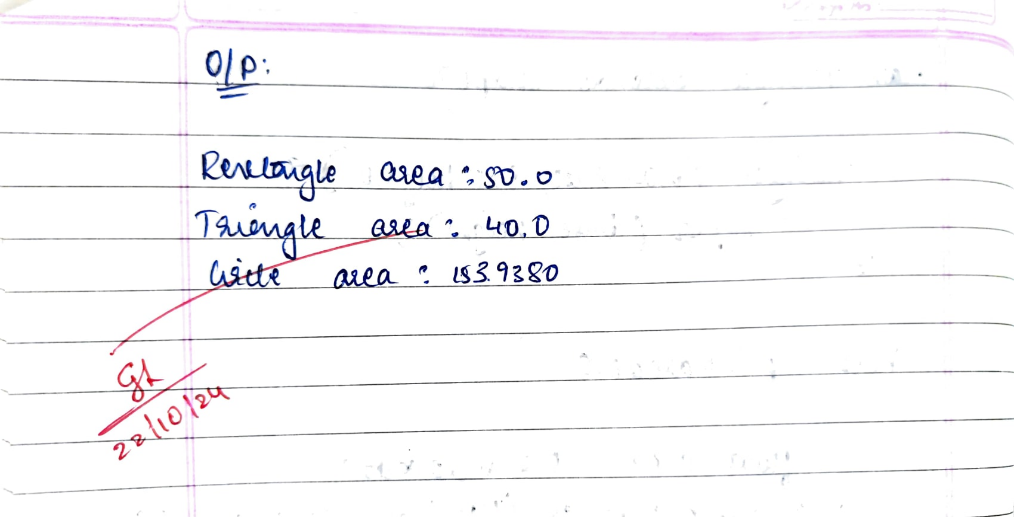 O/P:
Rectangle area : 50.0
Triangle area : 40.0
Circle area : 153.9380
22/10/24